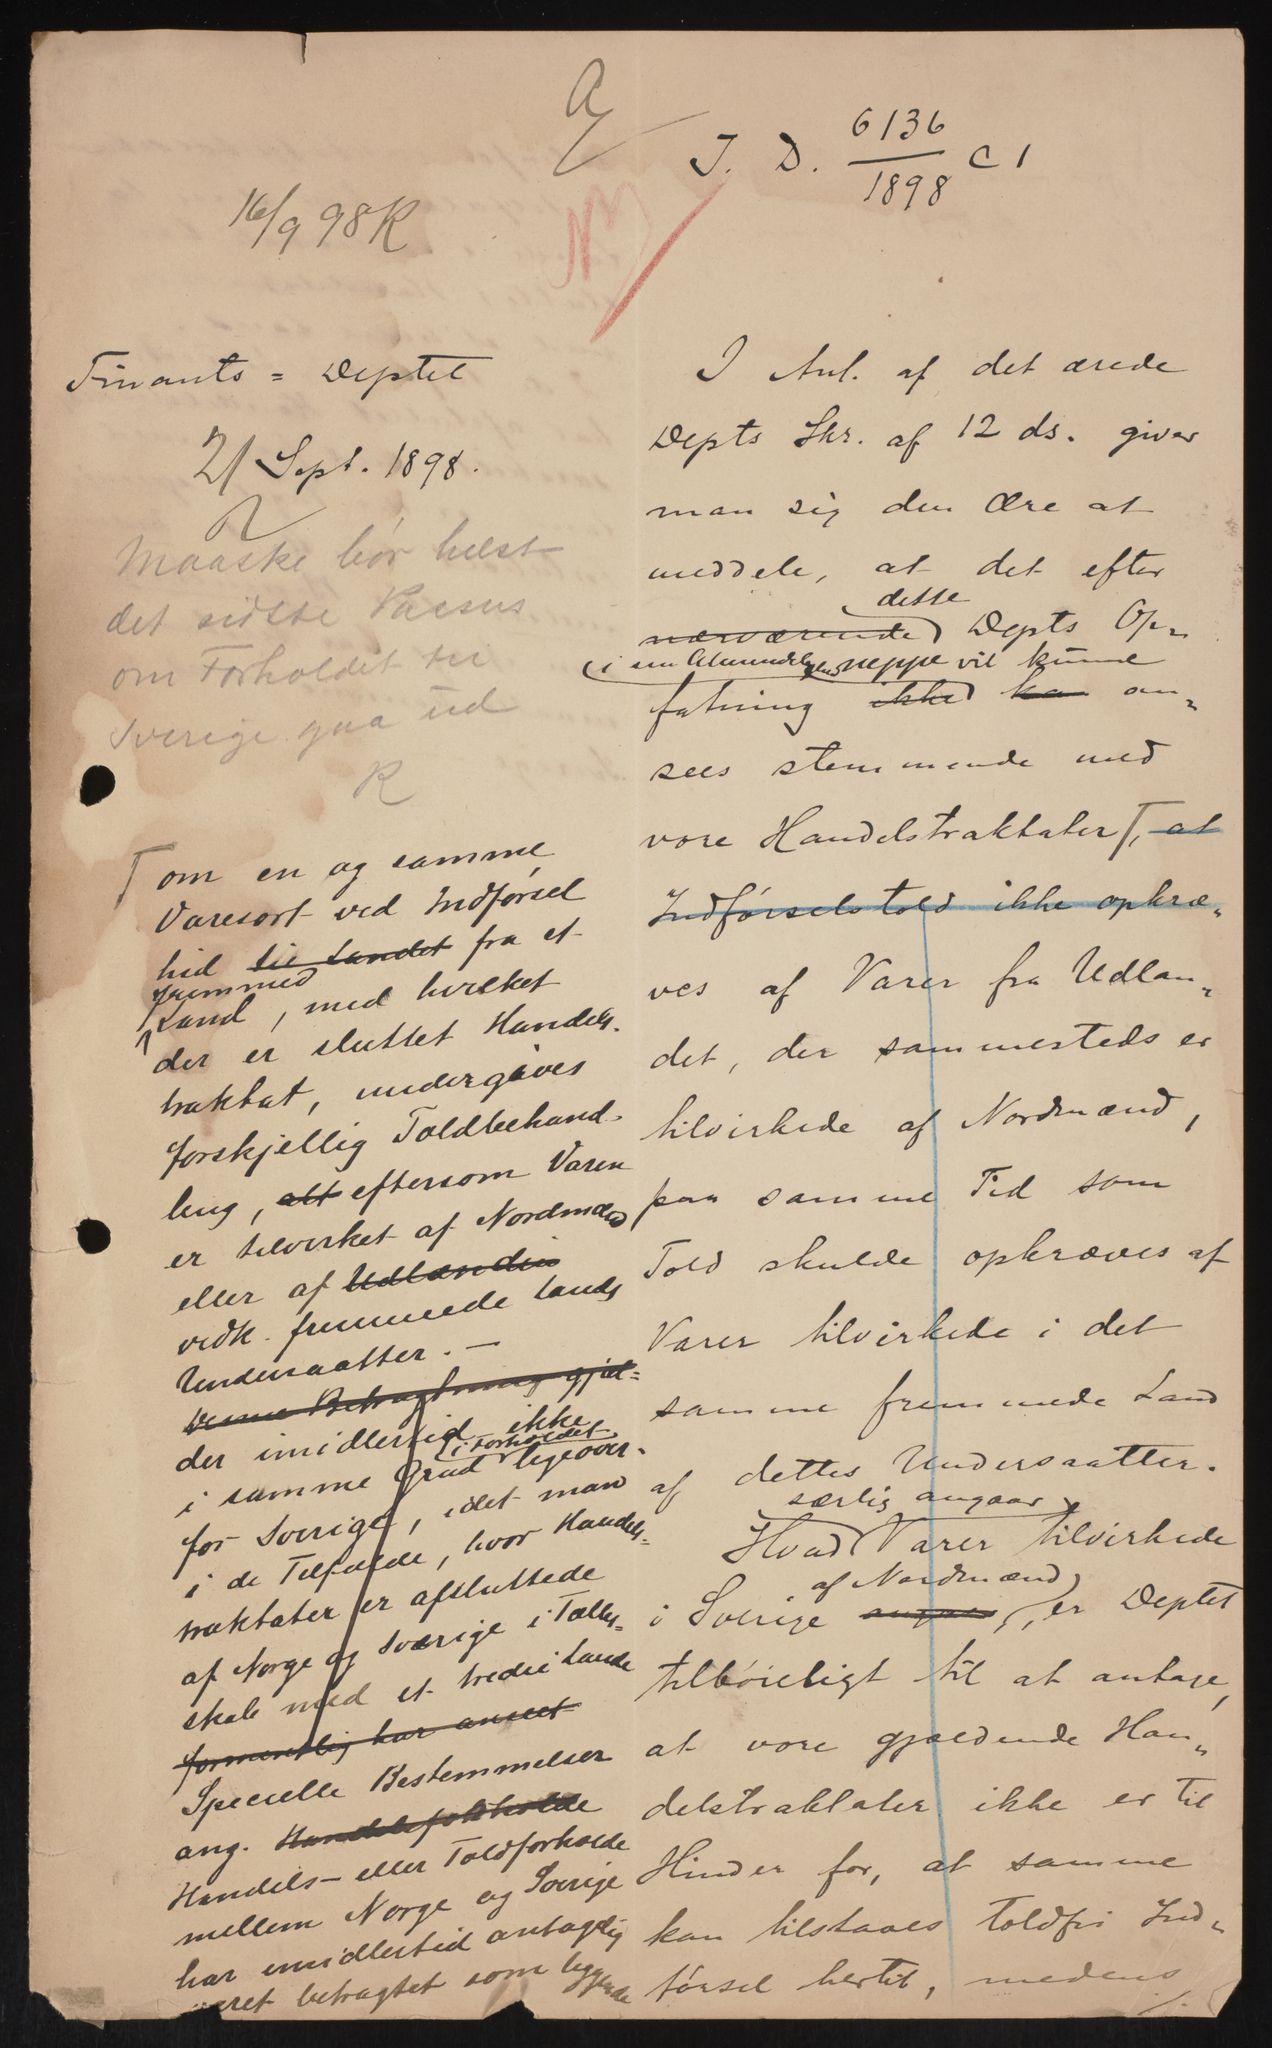 I. D. 6136/1898 C 1
16/9 98 R
Finants = Deptet
21 Sept. 1898.
Maaske bør helst
det sidste Passus
om Forholdet til
Sverige gaa ud
R
I Anl. af det ærede
Depts Skr. af 12 ds. giver
man sig den Ære at
meddele, at det efter
dette
nærværende Depts Op-
i sin Almindelighed neppe vil kunne
fatning ikke kan an-
sees stemmende med
vore Handelstraktater, at
Indførselstold ikke opkræ-
ves af Varer fra Udlan-
det, der sammesteds er
tilvirkede af Nordmænd,
paa samme Tid som
Told skulde opkræves af
Varer tilvirkede i det
samme fremmede Land
af dettes Undersaatter.
særlig angaar
Hvad Varer tilvirkede
af Nordmænd
i Sverige angaar, er Deptet
tilbøieligt til at antage,
at vore gjældende Han-
delstraktater ikke er til
Hinder for, at samme
kan tilstaaes toldfri Ind-
førsel hertil, medens
om en og samme
Varesort ved Indførsel
hid til Landet fra et
fremmed
Land, med hvilket
der er sluttet Handels-
traktat, undergives
forskjellig Toldbehand-
ling, alt eftersom Varen
er tilvirket af Nordmænd
eller af Udlændin
vedk. fremmede Lands
Undersaatter. -
Denne Betragtning gjæl-
der imidlertid ikke
i Forholdet
i samme Grad ligeover-
for Sverige, idet man
i de Tilfælde, hvor Handels-
traktater er afsluttede
af Norge og Sverige i Fælles-
skab med et tredie Lande
formentlig har anseet
Specielle Bestemmelser
ang. Handelsforholde
Handels- eller Toldforholde
mellem Norge og Sverige
har imidlertid antagelig
været betragtet som liggende